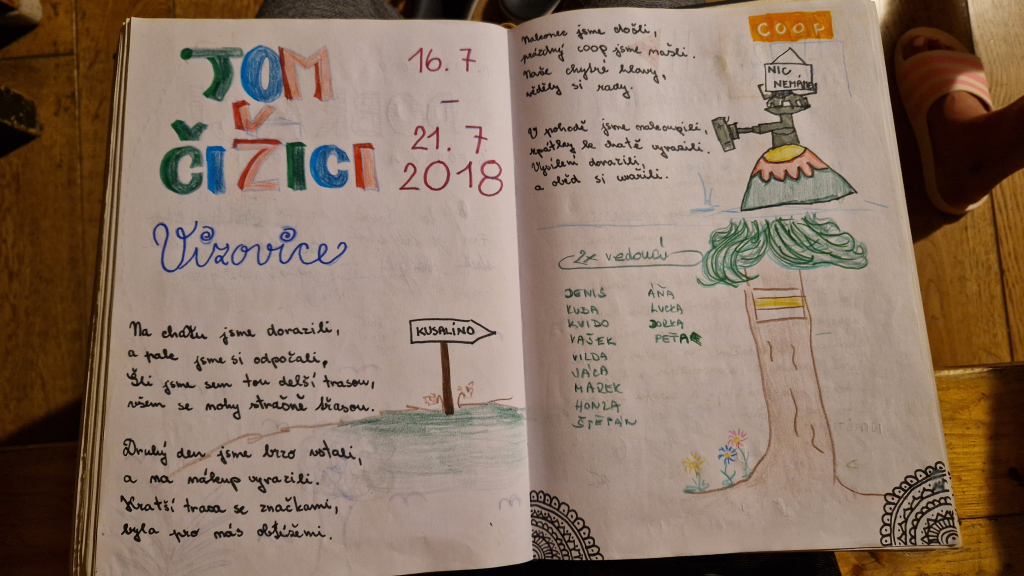 TOM
ČIŽICI
16.7
–
21.7
2018
Vizovice
Na chatu jsme dorazili,
a pak jsme si odpočali,
Šli jsme sem tou delší trasou,
všem se nohy strašně třasou.
Druhý den jsme brzo vstali,
a na nákup vyrazili.
Kratší trasa se značkami,
byla pro nás obtížemi.
KUSALÍNO
Nakonec jsme došli,
prázdný coop jsme našli.
Naše chytré hlavy,
věděly si rady.
V pohodě jsme nakoupili,
zpátky k chatě vyrazili.
Vysílení dorazili,
a oběd si uvařili.
COOP
NIC
NEMÁME
2x vedoucí
JENIS
KUBA
KVIDO
VAŠEK
VILDA
VÁŠA
MAREK
HONZA
ŠTĚPÁN
ÁŇA
LUCKA
DORKA